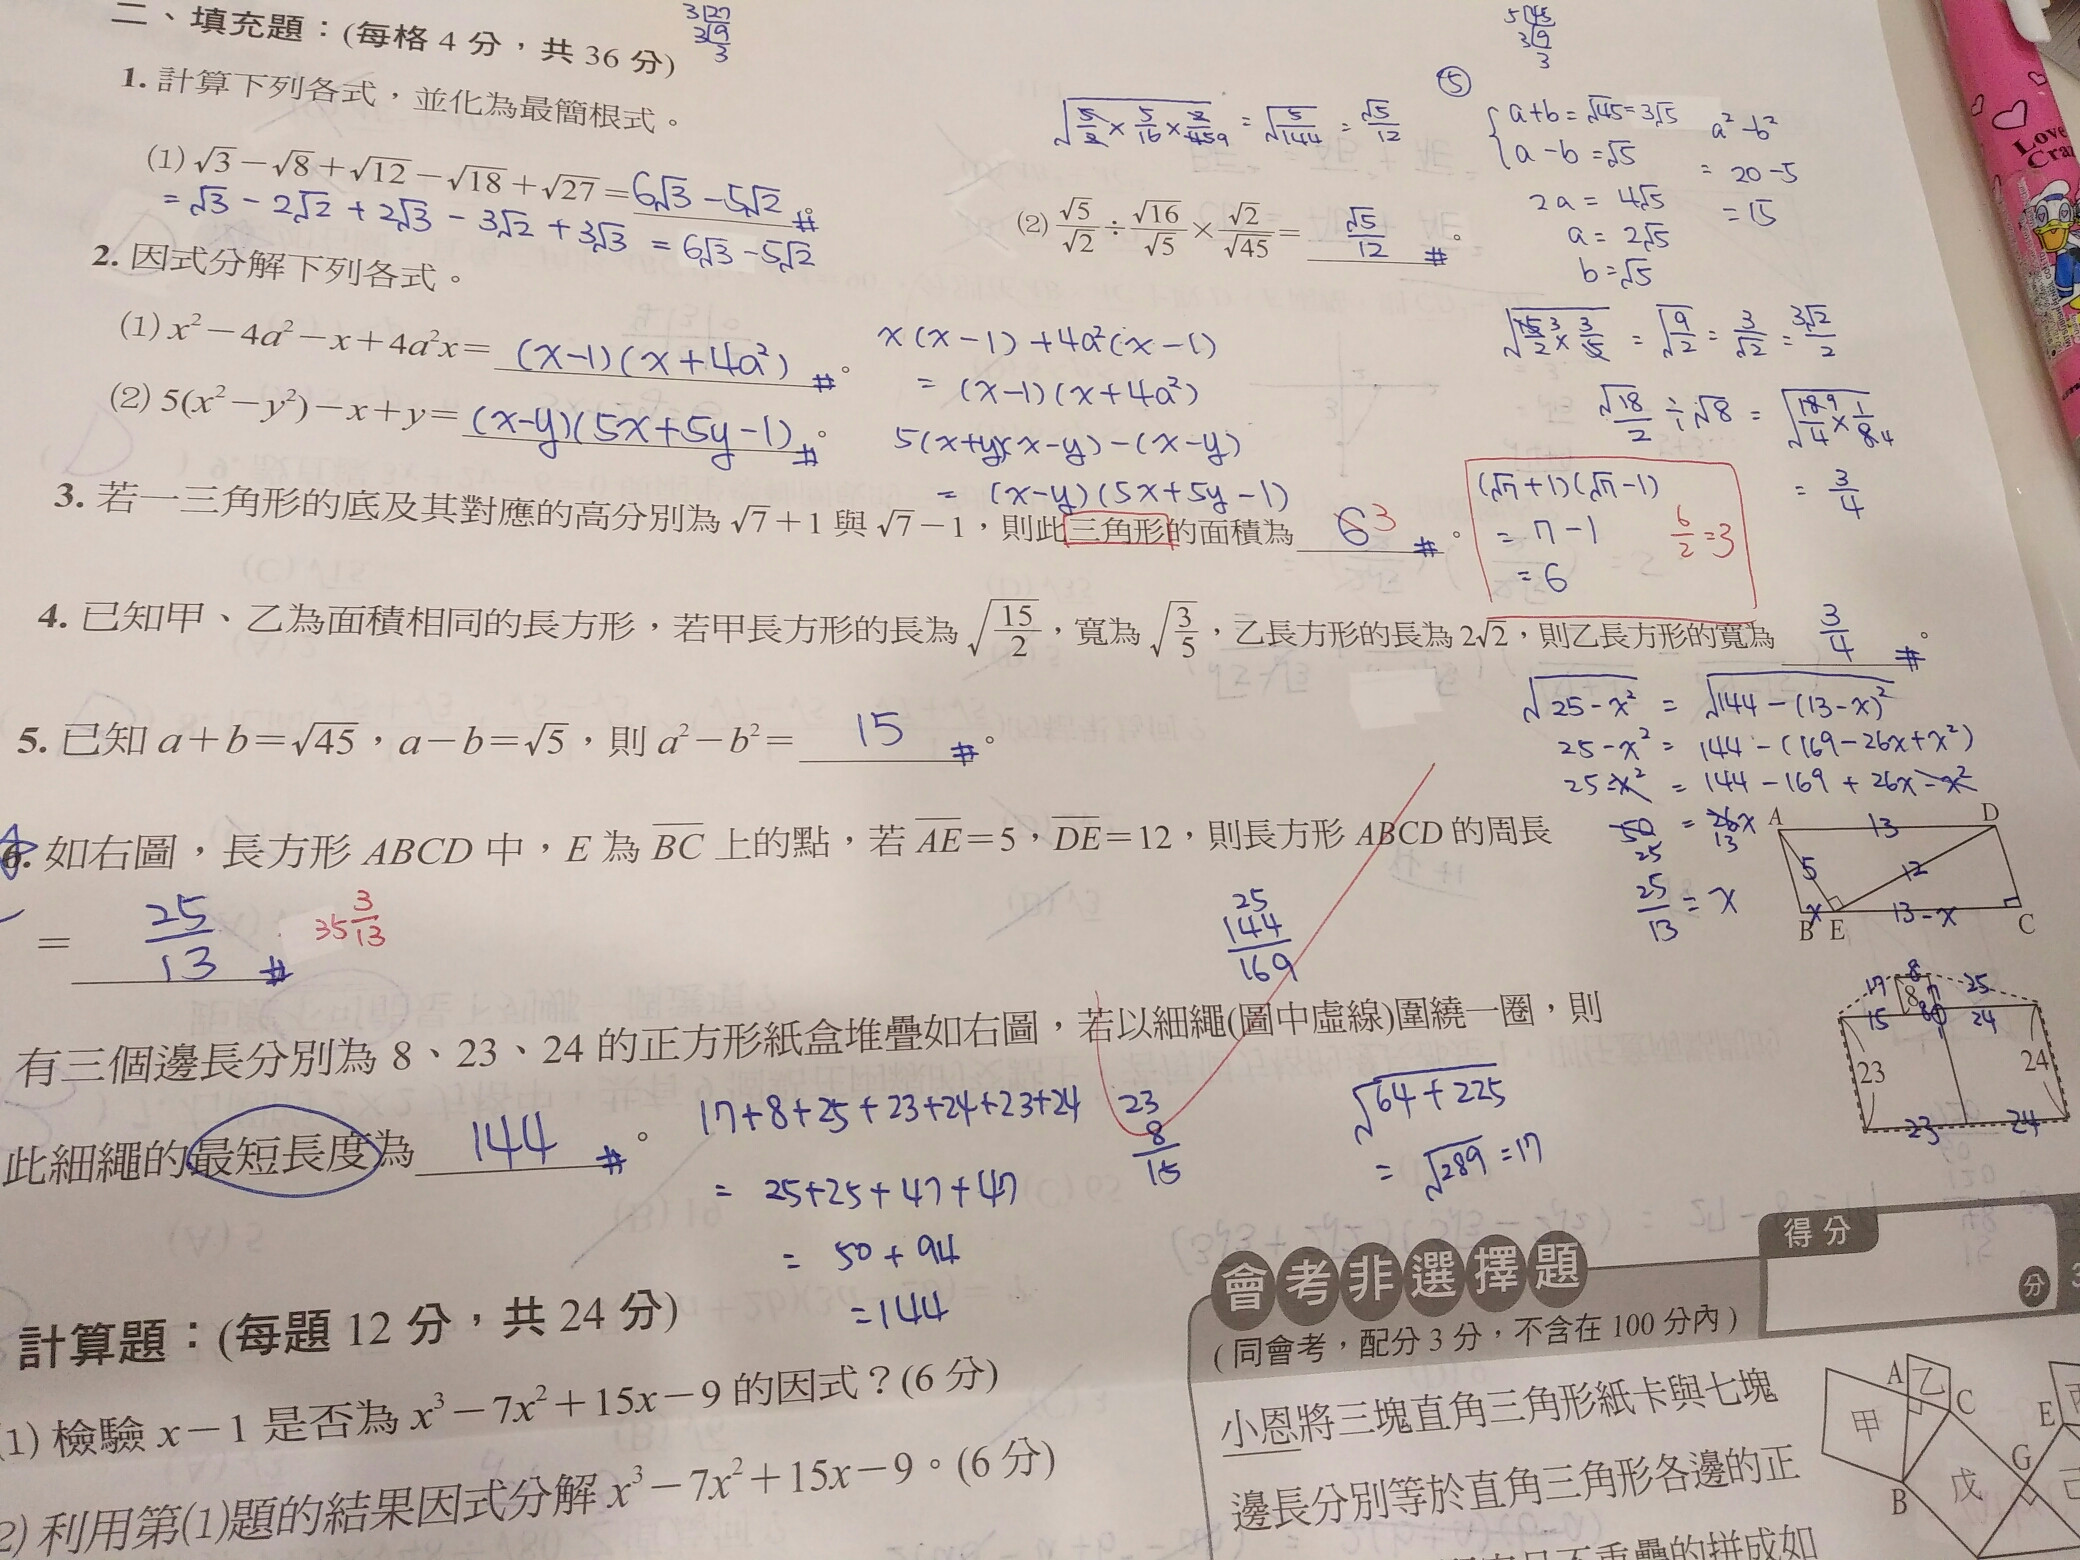 二、填充題：(每格 4 分，共 36 分)
3|27
3|9
3
5|45
3|9
3
1. 計算下列各式，並化為最簡根式。
(1) √3－√8＋√12－√18＋√27＝6√3－5√2 #。
= √3 － 2√2 + 2√3 － 3√2 + 3√3 = 6√3 －5√2
√(5/2 × 5/16 × 2/45 9) = √(5/144) = √5/12
(2) √5/√2 ÷ √16/√5 × √2/√45＝ √5/12 #。
⑤
a+b = √45 = 3√5
a－b = √5
2a = 4√5
a = 2√5
b = √5
a²－b²
= 20－5
= 15
2. 因式分解下列各式。
(1) x²－4a²－x＋4a²x＝ (x－1)(x＋4a²) #。
x(x－1)+4a²(x－1)
= (x－1)(x+4a²)
(2) 5(x²－y²)－x＋y＝ (x－y)(5x+5y－1) #。
5(x+y)(x－y)－(x－y)
= (x－y)(5x+5y－1)
√(15 3/2 × 3/5) = √(9/2) = 3/√2 = 3√2/2
√18/2 ÷ √8 = √(18 9/4 × 1/8 4)
= 3/4
3. 若一三角形的底及其對應的高分別為 √7＋1 與 √7－1，則此三角形的面積為 6 3 #。
(√7+1)(√7－1)
= 7－1
= 6
6/2 = 3
4. 已知甲、乙為面積相同的長方形，若甲長方形的長為 √(15/2)，寬為 √(3/5)，乙長方形的長為 2√2，則乙長方形的寬為 3/4 #。
5. 已知 a＋b＝√45，a－b＝√5，則 a²－b²＝ 15 #。
√(25－x²) = √(144－(13－x)²)
25－x² = 144－(169－26x+x²)
25－x² = 144－169 + 26x－x²
50 = 26x
25 13
25/13 = x
6. 如右圖，長方形 ABCD 中，E 為 BC 上的點，若 AE＝5，DE＝12，則長方形 ABCD 的周長
＝ 25/13 # 35 3/13
25
144
169
A 13 D
5 12
B x E 13－x C
有三個邊長分別為 8、23、24 的正方形紙盒堆疊如右圖，若以細繩(圖中虛線)圍繞一圈，則
此細繩的最短長度為 144 #。
17+8+25+23+24+23+24
= 25+25+47+47
= 50+94
= 144
23
8
15
√(64+225)
= √289 = 17
17 8 25
8 7
15 8 24
23 24
23 24
計算題：(每題 12 分，共 24 分)
(1) 檢驗 x－1 是否為 x³－7x²＋15x－9 的因式？(6 分)
2) 利用第(1)題的結果因式分解 x³－7x²＋15x－9。(6 分)
會考非選擇題
得分
分
(同會考，配分 3 分，不含在 100 分內)
小恩將三塊直角三角形紙卡與七塊
邊長分別等於直角三角形各邊的正
不重疊的拼成如
A 乙 C
甲 E
G
B 戊 己
Love